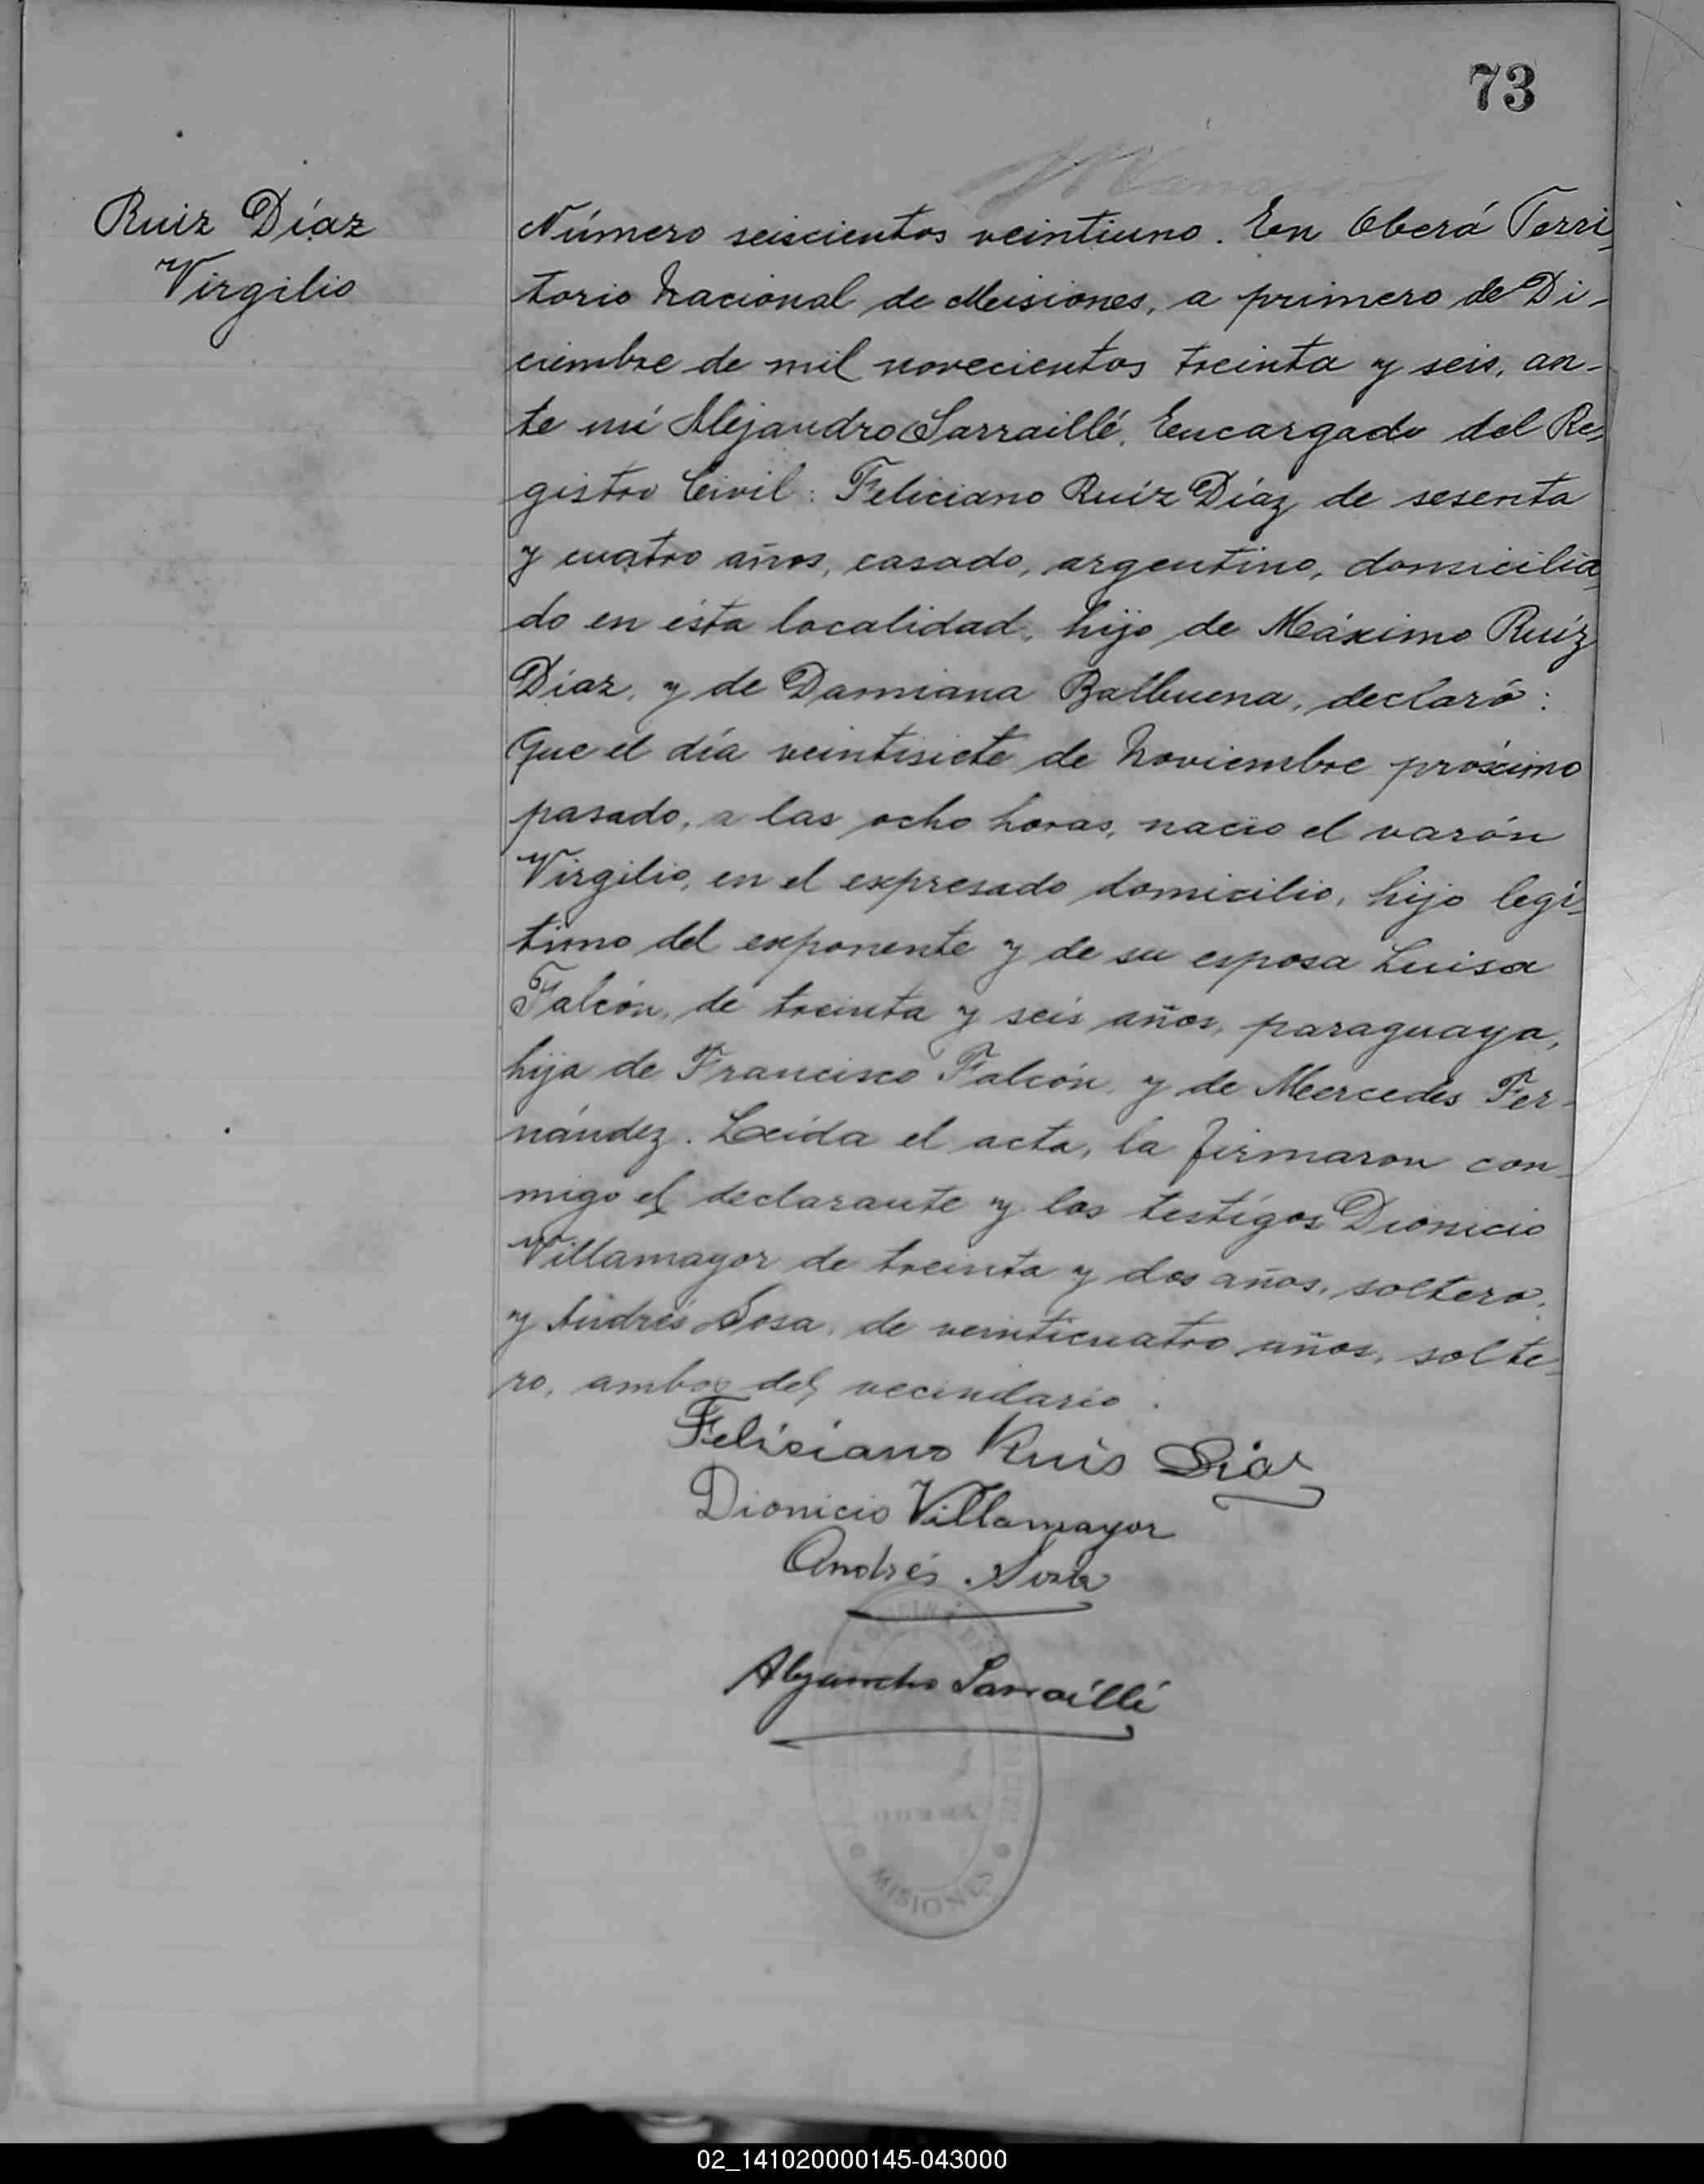 73
Ruiz Díaz
Virgilio
Número seiscientos veintiuno. En Oberá Terri-
torio Nacional de Misiones, a primero de Di-
ciembre de mil novecientos treinta y seis, an-
te mí Alejandro Sarraillé, Encargado del Re-
gistro Civil: Feliciano Ruíz Díaz de sesenta
y cuatro años, casado, argentino, domicilia-
do en ésta localidad, hijo de Máximo Ruíz
Díaz, y de Damiana Balbuena, declaró:
Que el día veintisiete de Noviembre próximo
pasado, a las ocho horas, nació el varón
Virgilio, en el expresado domicilio, hijo legí-
timo del exponente y de su esposa Luisa
Falcón, de treinta y seis años, paraguaya,
hija de Francisco Falcón, y de Mercedes Fer-
nández. Leída el acta, la firmaron con-
migo el declarante y los testígos Dionicio
Villamayor de treinta y dos años, soltero,
y Andrés Sosa, de veinticuatro años, solte-
ro, ambos del vecindario.
Feliciano Ruis Dias
Dionicio Villamayor
Andrés Sosa
Alejandro Sarraillé
MISIONES
02_141020000145-043000